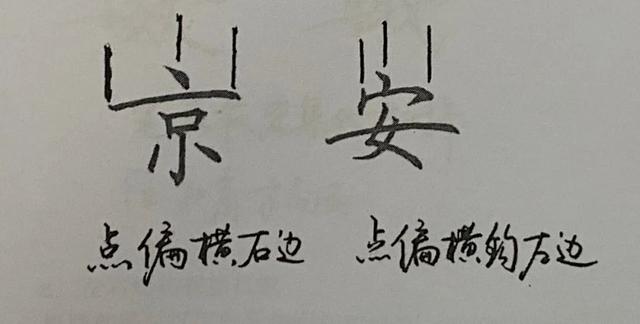 京 安
点偏横右边 点偏横钩左边